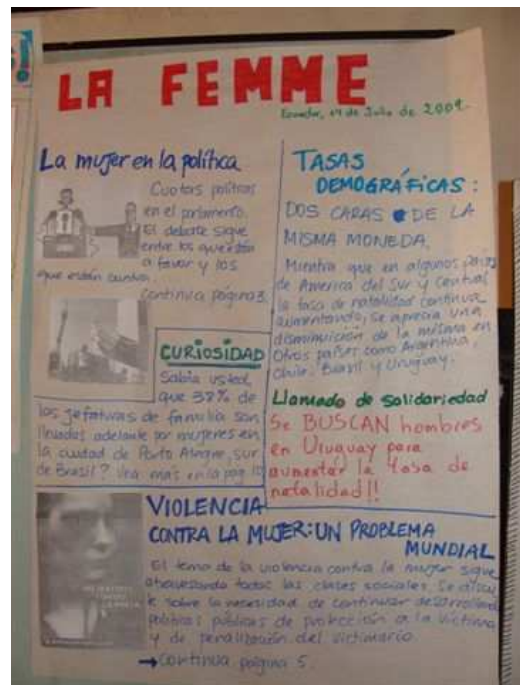 LA FEMME
Ecuador, 14 de Julio de 2009.
La mujer en la política
Cuotas políticas
en el parlamento.
El debate sigue
entre los que están
a favor y los
que están contra.
Continua página 3.
CURIOSIDAD
Sabía usted,
que 38% de
las jefaturas de familia son
llevadas adelante por mujeres en
la ciudad de Porto Alegre, sur
de Brasil? Vea más en la pag 10
TASAS
DEMOGRÁFICAS:
DOS CARAS DE LA
MISMA MONEDA.
Mientra que en algunos países
de America del Sur y Central
la tasa de natalidad continua
aumentando, se aprecia una
disminuición de la misma en
Otros países como Argentina,
Chile, Brasil y Uruguay.
Llamado de solidariedad
Se BUSCAN hombres
en Uruguay para
aumentar la tasa de
natalidad!!
VIOLENCIA
CONTRA LA MUJER: UN PROBLEMA
MUNDIAL
El tema de la violencia contra la mujer sigue
atravesando todas las clases sociales. Se discu
te sobre la necesidad de continuar desarrollando
políticas públicas de protección a la víctima
y de penalización del victimario.
→ Continua página 5.